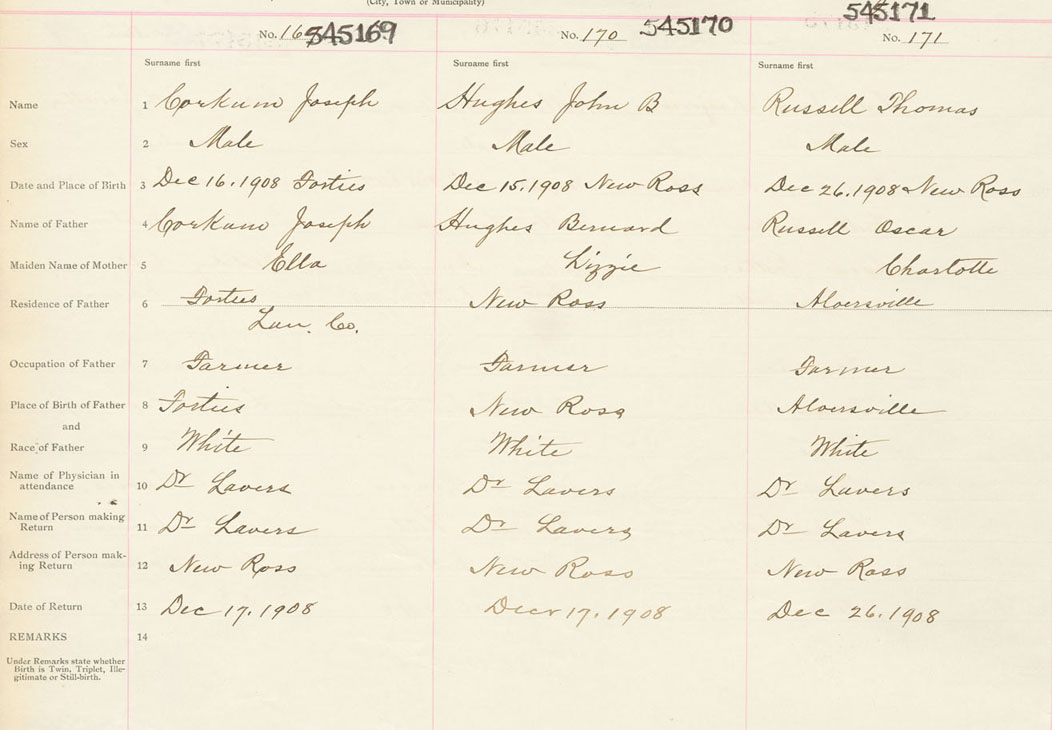 (City, Town or Municipality)
545171
No. 545169 No. 170 545170 No. 171
Surname first Surname first Surname first
Name 1 Corkum Joseph Hughes John B Russell Thomas
Sex 2 Male Male Male
Date and Place of Birth 3 Dec 16. 1908 Forties Dec 15. 1908 New Ross Dec 26. 1908 New Ross
Name of Father 4 Corkum Joseph Hughes Bernard Russell Oscar
Maiden Name of Mother 5 Ella Lizzie Charlotte
Residence of Father 6 Forties New Ross Aldersville
Lun. Co.
Occupation of Father 7 Farmer Farmer Farmer
Place of Birth of Father 8 Forties New Ross Aldersville
and
Race of Father 9 White White White
Name of Physician in
attendance 10 Dr Lavers Dr Lavers Dr Lavers
Name of Person making
Return 11 Dr Lavers Dr Lavers Dr Lavers
Address of Person mak-
ing Return 12 New Ross New Ross New Ross
Date of Return 13 Dec 17. 1908 Decr 17. 1908 Dec 26. 1908
REMARKS 14
Under Remarks state whether
Birth is Twin, Triplet, Ille-
gitimate or Still-birth.